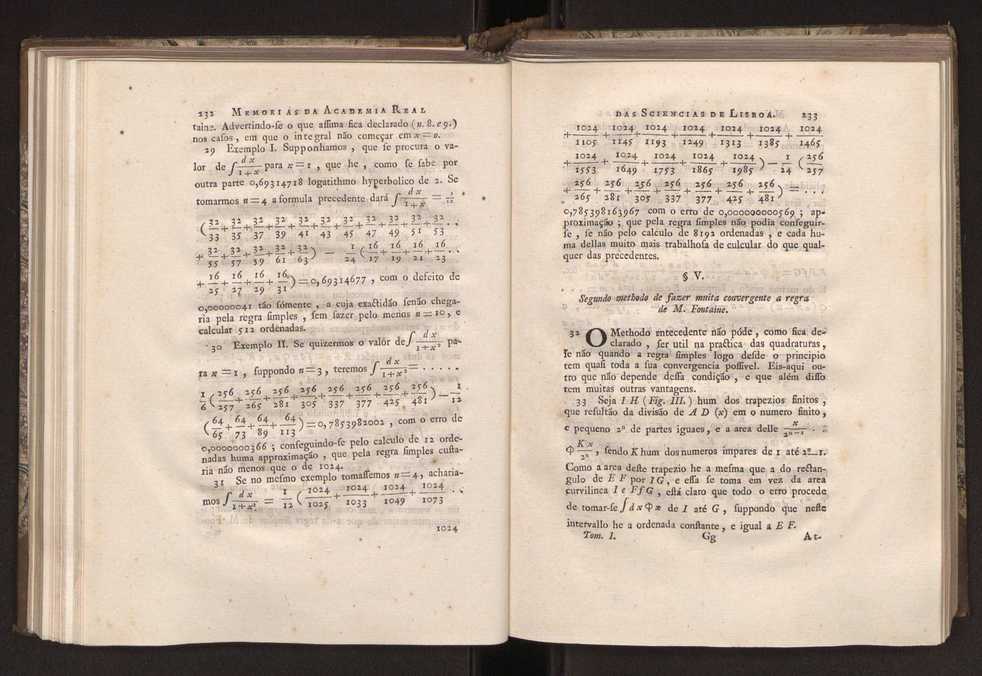 232 MEMORIAS DA ACADEMIA REAL
taine. Advertindo-ſe o que aſſima fica declarado (n. 8. e 9.)
nos caſos, em que o integral não começar em x = 0.
29 Exemplo I. Supponhamos, que ſe procura o va-
lor de ∫ dx/(1+x) para x = 1, que he, como ſe ſabe por
outra parte 0,69314718 logatithmo hyperbolico de 2. Se
tomarmos n = 4 a formula precedente dará ∫ dx/(1+x) = 1/12
(32/33 + 32/35 + 32/37 + 32/39 + 32/41 + 32/43 + 32/45 + 32/47 + 32/49 + 32/51 + 32/53 . .
+ 32/55 + 32/57 + 32/59 + 32/61 + 32/63) — 1/24 (16/17 + 16/19 + 16/21 + 16/23 . .
+ 16/25 + 16/27 + 16/29 + 16/31) = 0,69314677, com o defeito de
0,00000041 tão ſómente, a cuja exactidão ſenão chega-
ria pela regra ſimples, ſem fazer pelo menos n = 10, e
calcular 512 ordenadas.
30 Exemplo II. Se quizermos o valôr de ∫ dx/(1+x²) pa-
ra x = 1, ſuppondo n = 3, teremos ∫ dx/(1+x²) = . . . . . .
1/6 (256/257 + 256/265 + 256/281 + 256/305 + 256/337 + 256/377 + 256/425 + 256/481) — 1/12
(64/65 + 64/73 + 64/89 + 64/113) = 0,7853982002, com o erro de
0,0000000366; conſeguindo-ſe pelo calculo de 12 orde-
nadas huma approximação, que pela regra ſimples cuſta-
ria não menos que o de 1024.
31 Se no meſmo exemplo tomaſſemos n = 4, acharia-
mos ∫ dx/(1+x²) = 1/12 (1024/1025 + 1024/1033 + 1024/1049 + 1024/1073 . .
1024
DAS SCIENCIAS DE LISBOA. 233
+ 1024/1105 + 1024/1145 + 1024/1193 + 1024/1249 + 1024/1313 + 1024/1385 + 1024/1465
+ 1024/1553 + 1024/1649 + 1024/1753 + 1024/1865 + 1024/1985) — 1/24 (256/257
+ 256/265 + 256/281 + 256/305 + 256/337 + 256/377 + 256/425 + 256/481) = . . .
0,785398163967 com o erro de 0,000000000569; ap-
proximação; que pela regra ſimples não podia conſeguir-
ſe, ſe não pelo calculo de 8192 ordenadas, e cada hu-
ma dellas muito mais trabalhoſa de culcular do que qual-
quer das precedentes.
§ V.
Segundo methodo de fazer muita convergente a regra
de M. Fontaine.
32 O Methodo antecedente não póde, como fica de-
clarado, ſer util na practica das quadraturas,
ſe não quando a regra ſimples logo deſde o principio
tem quaſi toda a ſua convergencia poſſivel. Eis-aqui ou-
tro que não depende deſſa condição, e que além diſſo
tem muitas outras vantagens.
33 Seja I H (Fig. III.) hum dos trapezios finitos,
que reſultão da diviſão de A D (x) em o numero finito,
e pequeno 2ⁿ de partes iguaes, e a area delle x/2ⁿ⁻¹ . :
Φ Kx/2ⁿ, ſendo K hum dos numeros ímpares de 1 até 2ⁿ—1.
Como a area deſte trapezio he a meſma que a do rectan-
gulo de E F por I G, e eſſa ſe toma em vez da area
curvilinea I e F f G, eſtá claro que todo o erro procede
de tomar-ſe ∫ dx Φ x de I até G, ſuppondo que neſte
intervallo he a ordenada conſtante, e igual a E F.
Tom. I. Gg At-